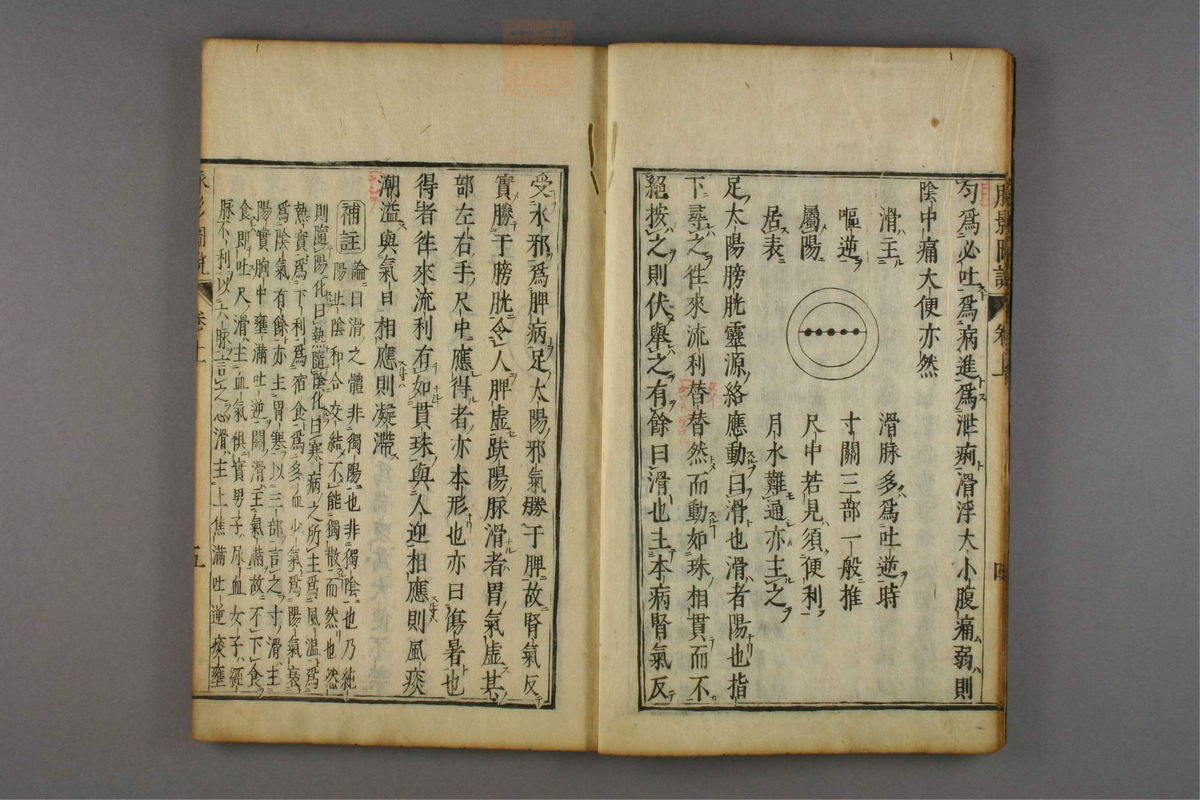 勻爲必吐爲病進爲泄痢滑浮大小腹痛弱則
陰中痛大便亦然
滑主
嘔逆
屬陽
居表
滑脉多爲吐逆時
寸關三部一般推
尺中若見須便利
月水難通亦主之
足太陽膀胱靈源絡應動曰滑也滑者陽也指
下尋之徃來流利替替然而動如珠相貫而不
絕按之則伏舉之有餘曰滑也主本病腎氣反
四
受水邪爲脾病足太陽邪氣勝于脾故腎氣反
實勝于膀胱令人脾虛趺陽脉滑者胃氣虛甚
部左右手尺中應得者亦本形也亦曰傷暑也
得者徃來流利有如貫珠與人迎相應則風痰
潮溢與氣口相應則凝滯
補註
論曰滑之體非獨陽也非獨陰也乃純
陽 陰和合交結不能獨散而然也然
則隨陽化曰熱隨陰化曰寒病之所主爲風溫爲
熱實爲下利爲宿食爲多血少氣爲陽氣衰
爲陰氣有餘亦主胃寒以三部言之寸滑主
陽實胸中壅滿吐逆關滑主氣滿故不下食
食即吐尺滑主血氣俱實男子尿血女子經
脉不利以六脉言之心滑主上焦滿吐逆痰壅
五